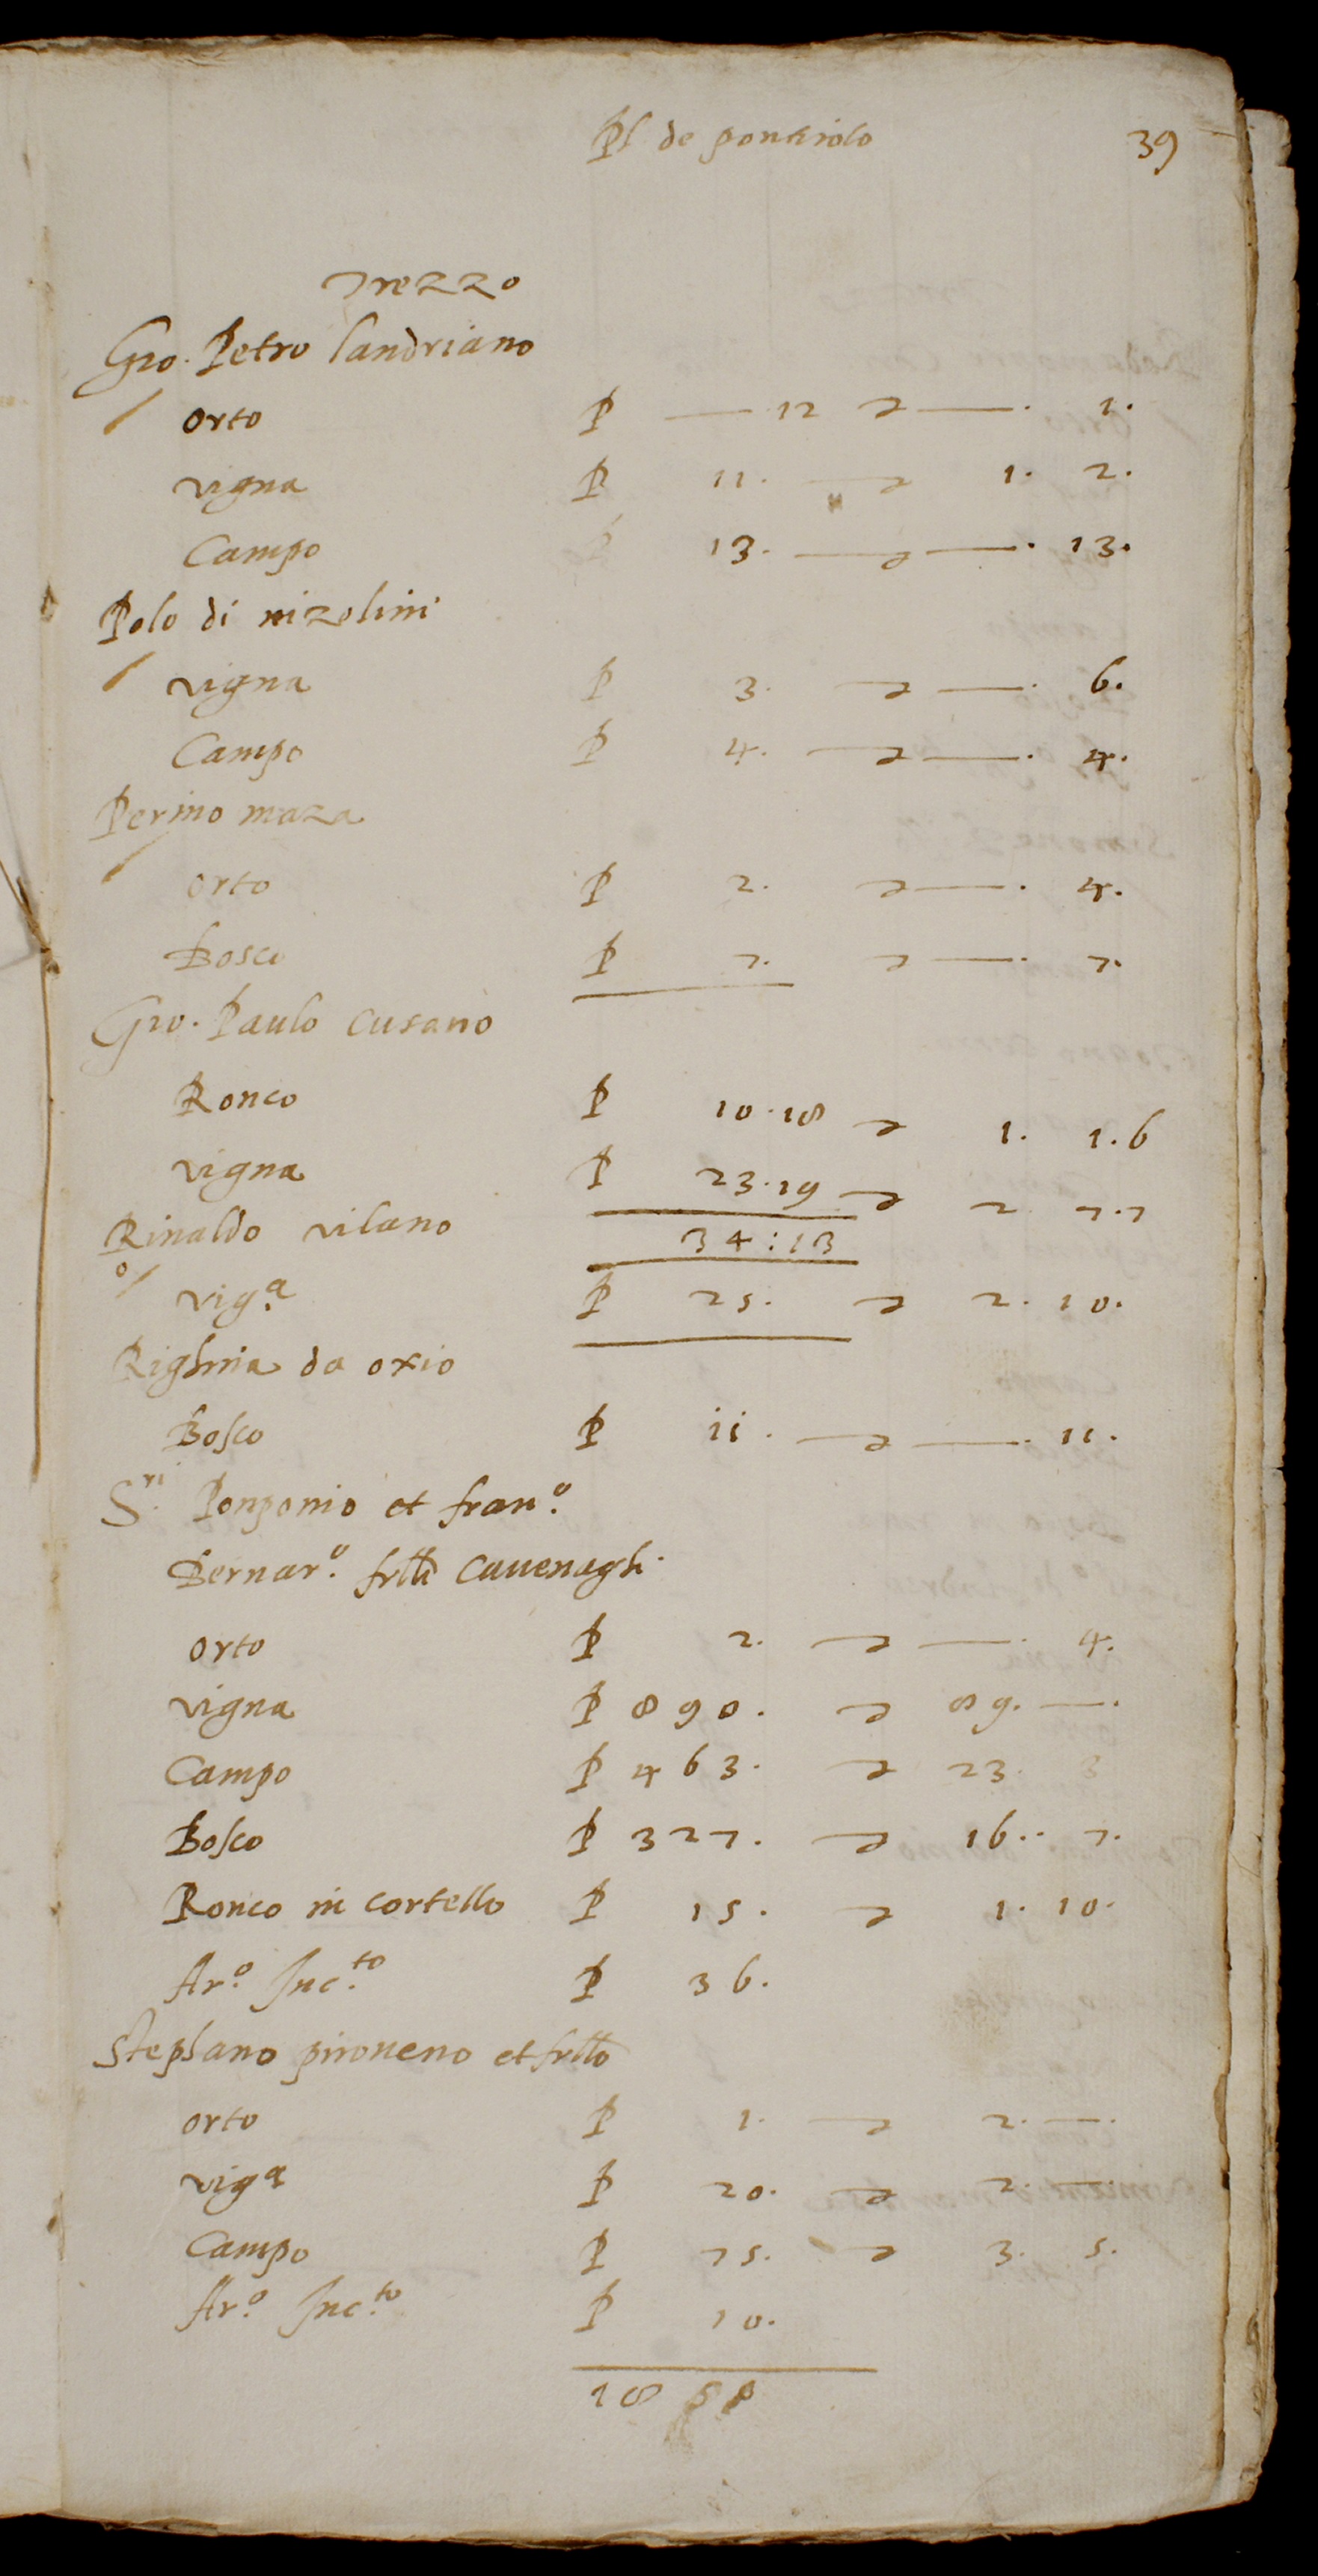 Pl de pontirolo 39
Trezzo
Gio. Petro landriano
/ orto P — 12 d — . 1.
vigna P 11. — d 1. 2.
Campo P 13. — d — . 13.
Polo di nizolini
/ vigna P 3. d — . 6.
Campo P 4. — d — . 4.
Perino maza
/ orto P 2. d — . 4.
Bosco P 7. d — . 7.
Gio. Paulo Cusano
Ronco P 10.18 d 1. 1.6
vigna P 23.19 d 2 7.7
Rinaldo vilano
34:13
o/ vig.a P 25. d 2. 10.
Righina da oxio
Bosco P ii. — d — . 11.
S.ri Ponponio et fran.o
Bernar.o frlli Cavenaghi
orto P 2. d — . 4.
vigna P 890. d 89. — .
Campo P 463. d 23. 3
Bosco P 327. d 16.. 7.
Ronco in cortello P 15. d 1. 10.
Ar.o Inc.to P 36.
Stephano pioveno et frllo
orto P 1. — d 2. — .
viga P 20. — d 2. — .
Campo P 75. d 3. 5.
Ar.o Inc.to P 10.
18